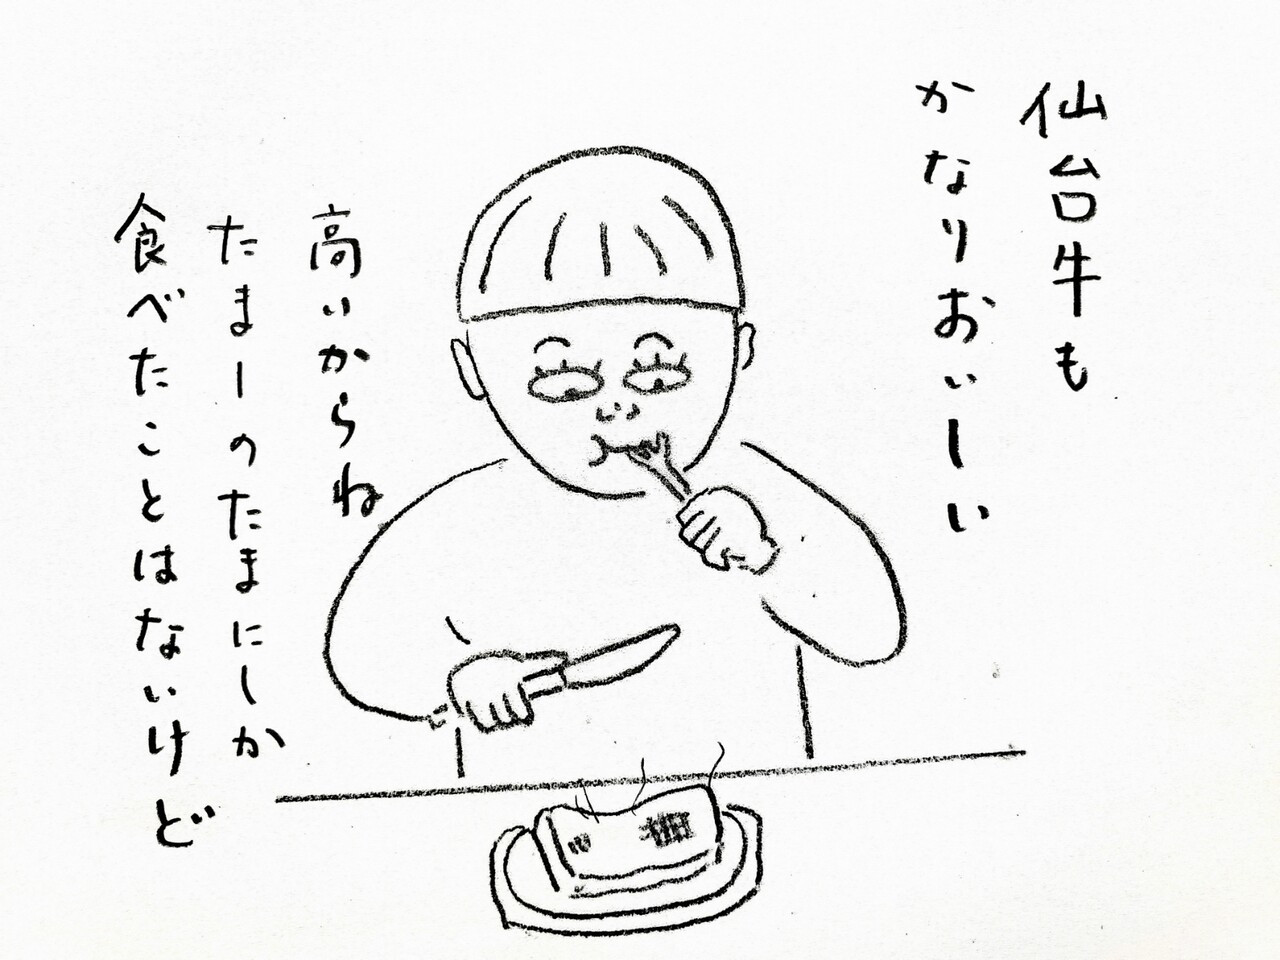 仙台牛も
かなりおいしい
高いからね
たまーのたまにしか
食べたことはないけど